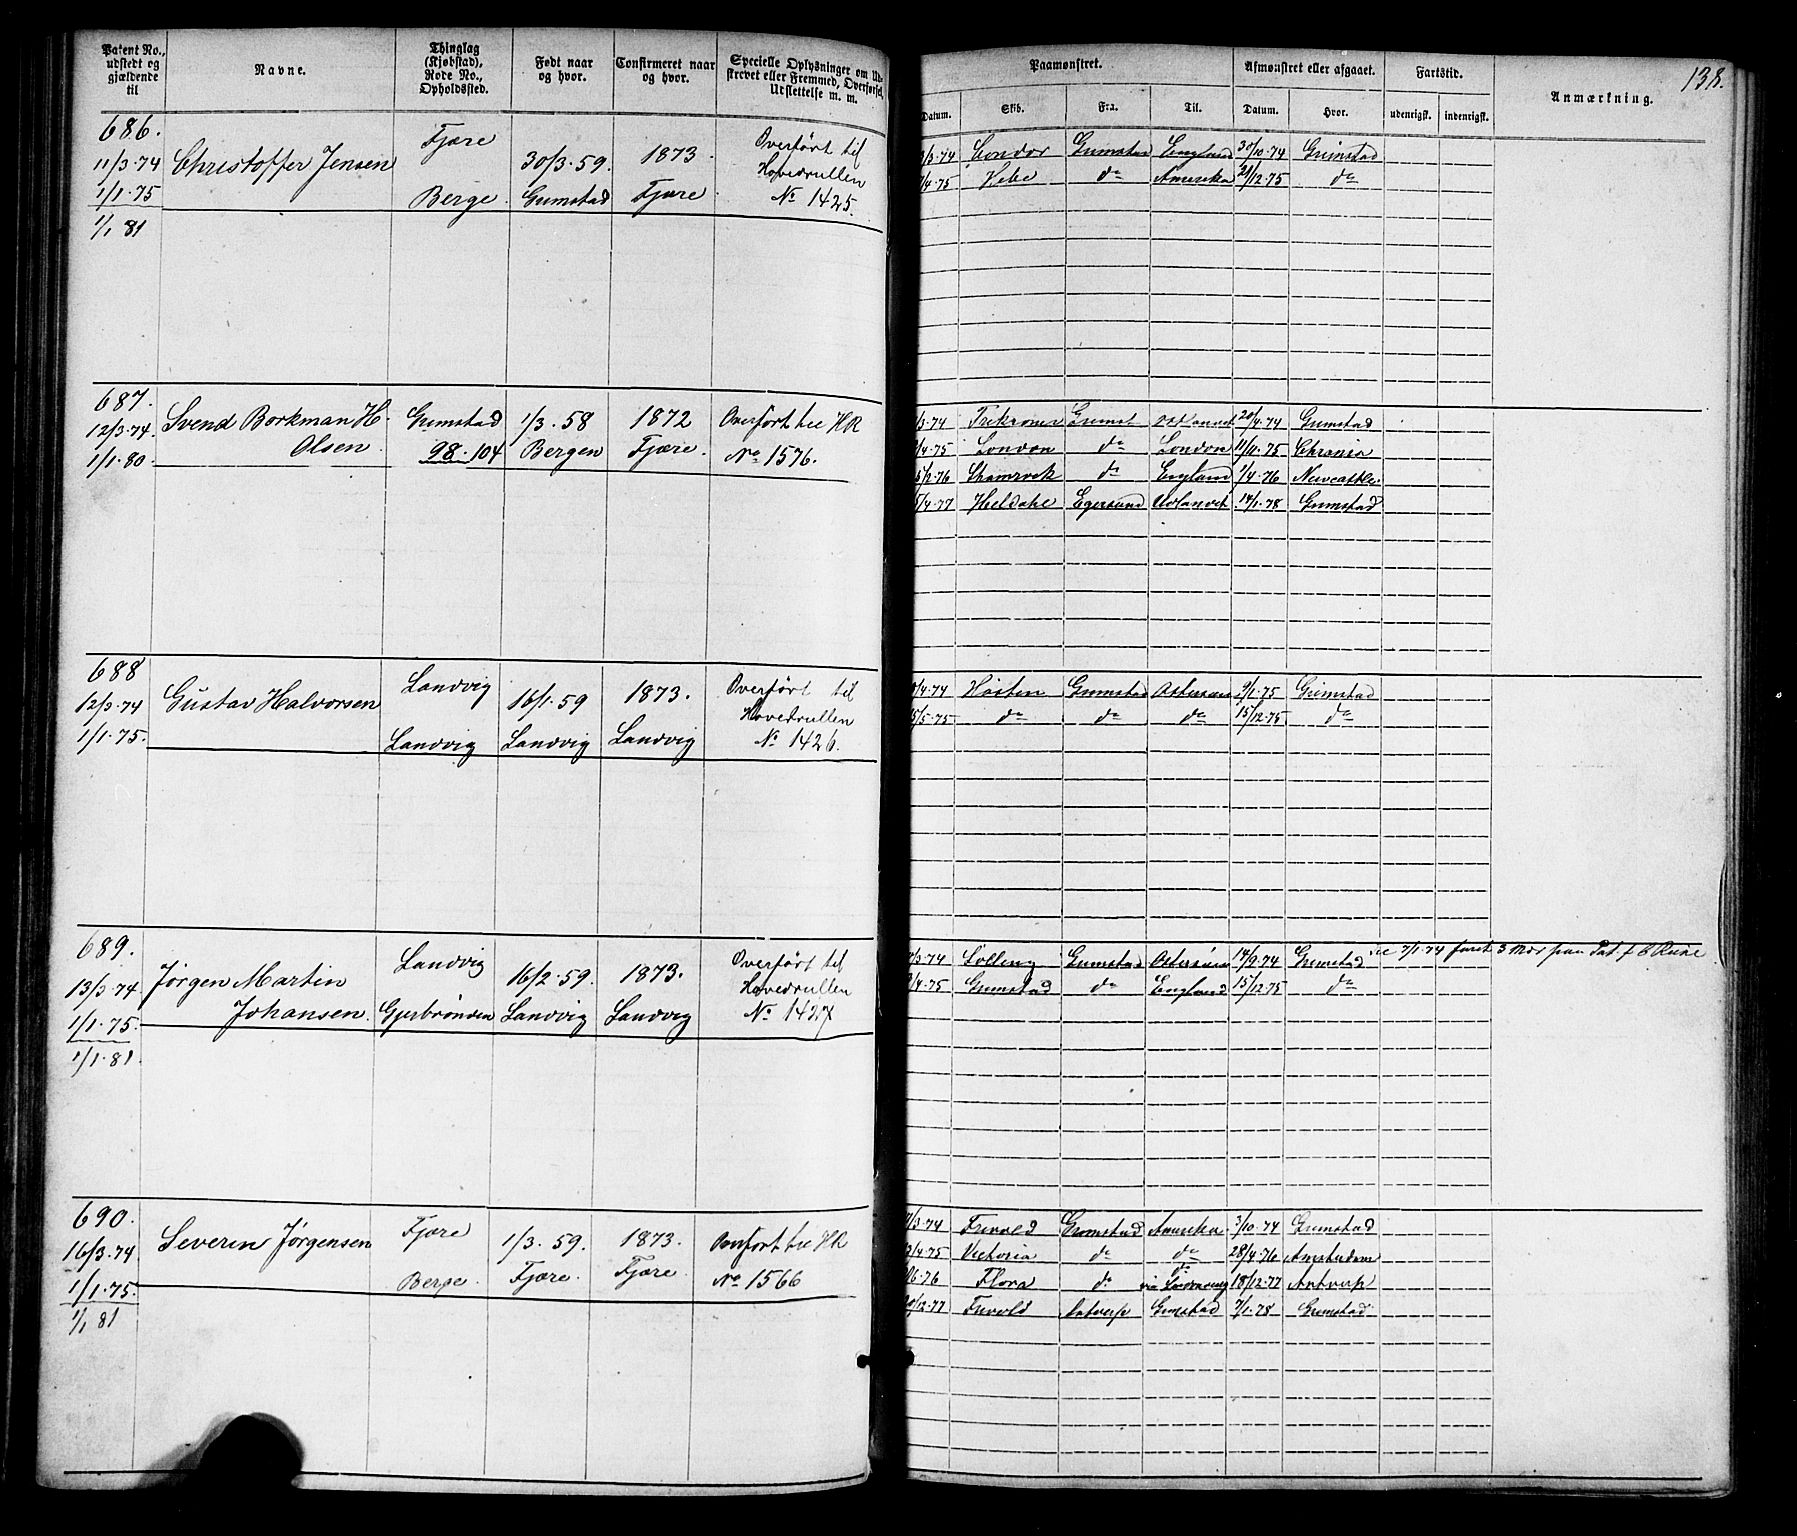 138.
Patent No., udstedt og gjældende til
Navne.
Thinglag (Kjøbstad), Rode No., Opholdssted.
Født naar og hvor.
Confirmeret naar og hvor.
Specielle Oplysninger om Udskrevet eller Fremmed, Overførsel, Udslettelse m. m.
Paamønstret.
Afmønstret eller afgaaet.
Fartstid.
Anmærkning.
Datum.
Skib.
Fra.
Til.
Datum.
Hvor.
udenrigsk.
indenrigsk.
686.
11/3.74
1/1.75
1/1 81
Christoffer Jensen
Fjære
Berge
30/3.59.
Grimstad
1873.
Fjære
Overført til
Hovedrullen
No 1425.
/3.74 Condor Grimstad England 30/10.74 Grimstad
/4.75 Hebe do Amerika 21/12.75 do
687.
12/3.74.
1/1.80.
Svend Borkman H.
Olsen.
Grimstad
98.104
1/3.58
Bergen
1872
Fjære.
Overført til HR
No 1576.
/3.74 Grimst 20/4.74 Grimstad
/4.75 London do London 11/11.75 Chrania
/2.76 Shamrock do England 1/4.76 Newcastle.
/4.77 Heldahl Egersund Udlandet 14/1.78 Grimstad
688
12/3.74
1/1.75.
Gustav Halvorsen
Landvig
Landvig
16/1.59
Landvig
1873.
Landvig
Overført til
Hovedrullen
No 1426.
/4.74 Høsten Grimstad Østersøen 9/1.75 Grimstad
5/5.75 do do do 15/12.75 do
689.
13/3.74
1/1.75.
1/1.81.
Jørgen Martin
Johansen.
Landvig
Gjerbrønden
16/2.59.
Landvig
1873.
Landvig
Overført til
Hovedrullen
No 1427
/3.74 Grimstad Østersøen 14/9.74 Grimstad 7/1.74 faret 3 Mdr paa Pat. f
/4.75 Grimstad do England 15/12.75 do
690.
16/3.74
1/1.75.
1/1 81
Severin Jørgensen
Fjære
Berge.
1/3.59.
Fjære.
1873.
Fjære.
Overført til HR
No 1566
/3.74 Frivold Grimstad Amerika 3/10.74 Grimstad
/4.75 Victoria do do 28/4.76 Amsterdam
/6.76 Flora do do via 18/12.77 Antverp
/12.77 Frivold Antverp Grimstad 7/1.78 Grimstad